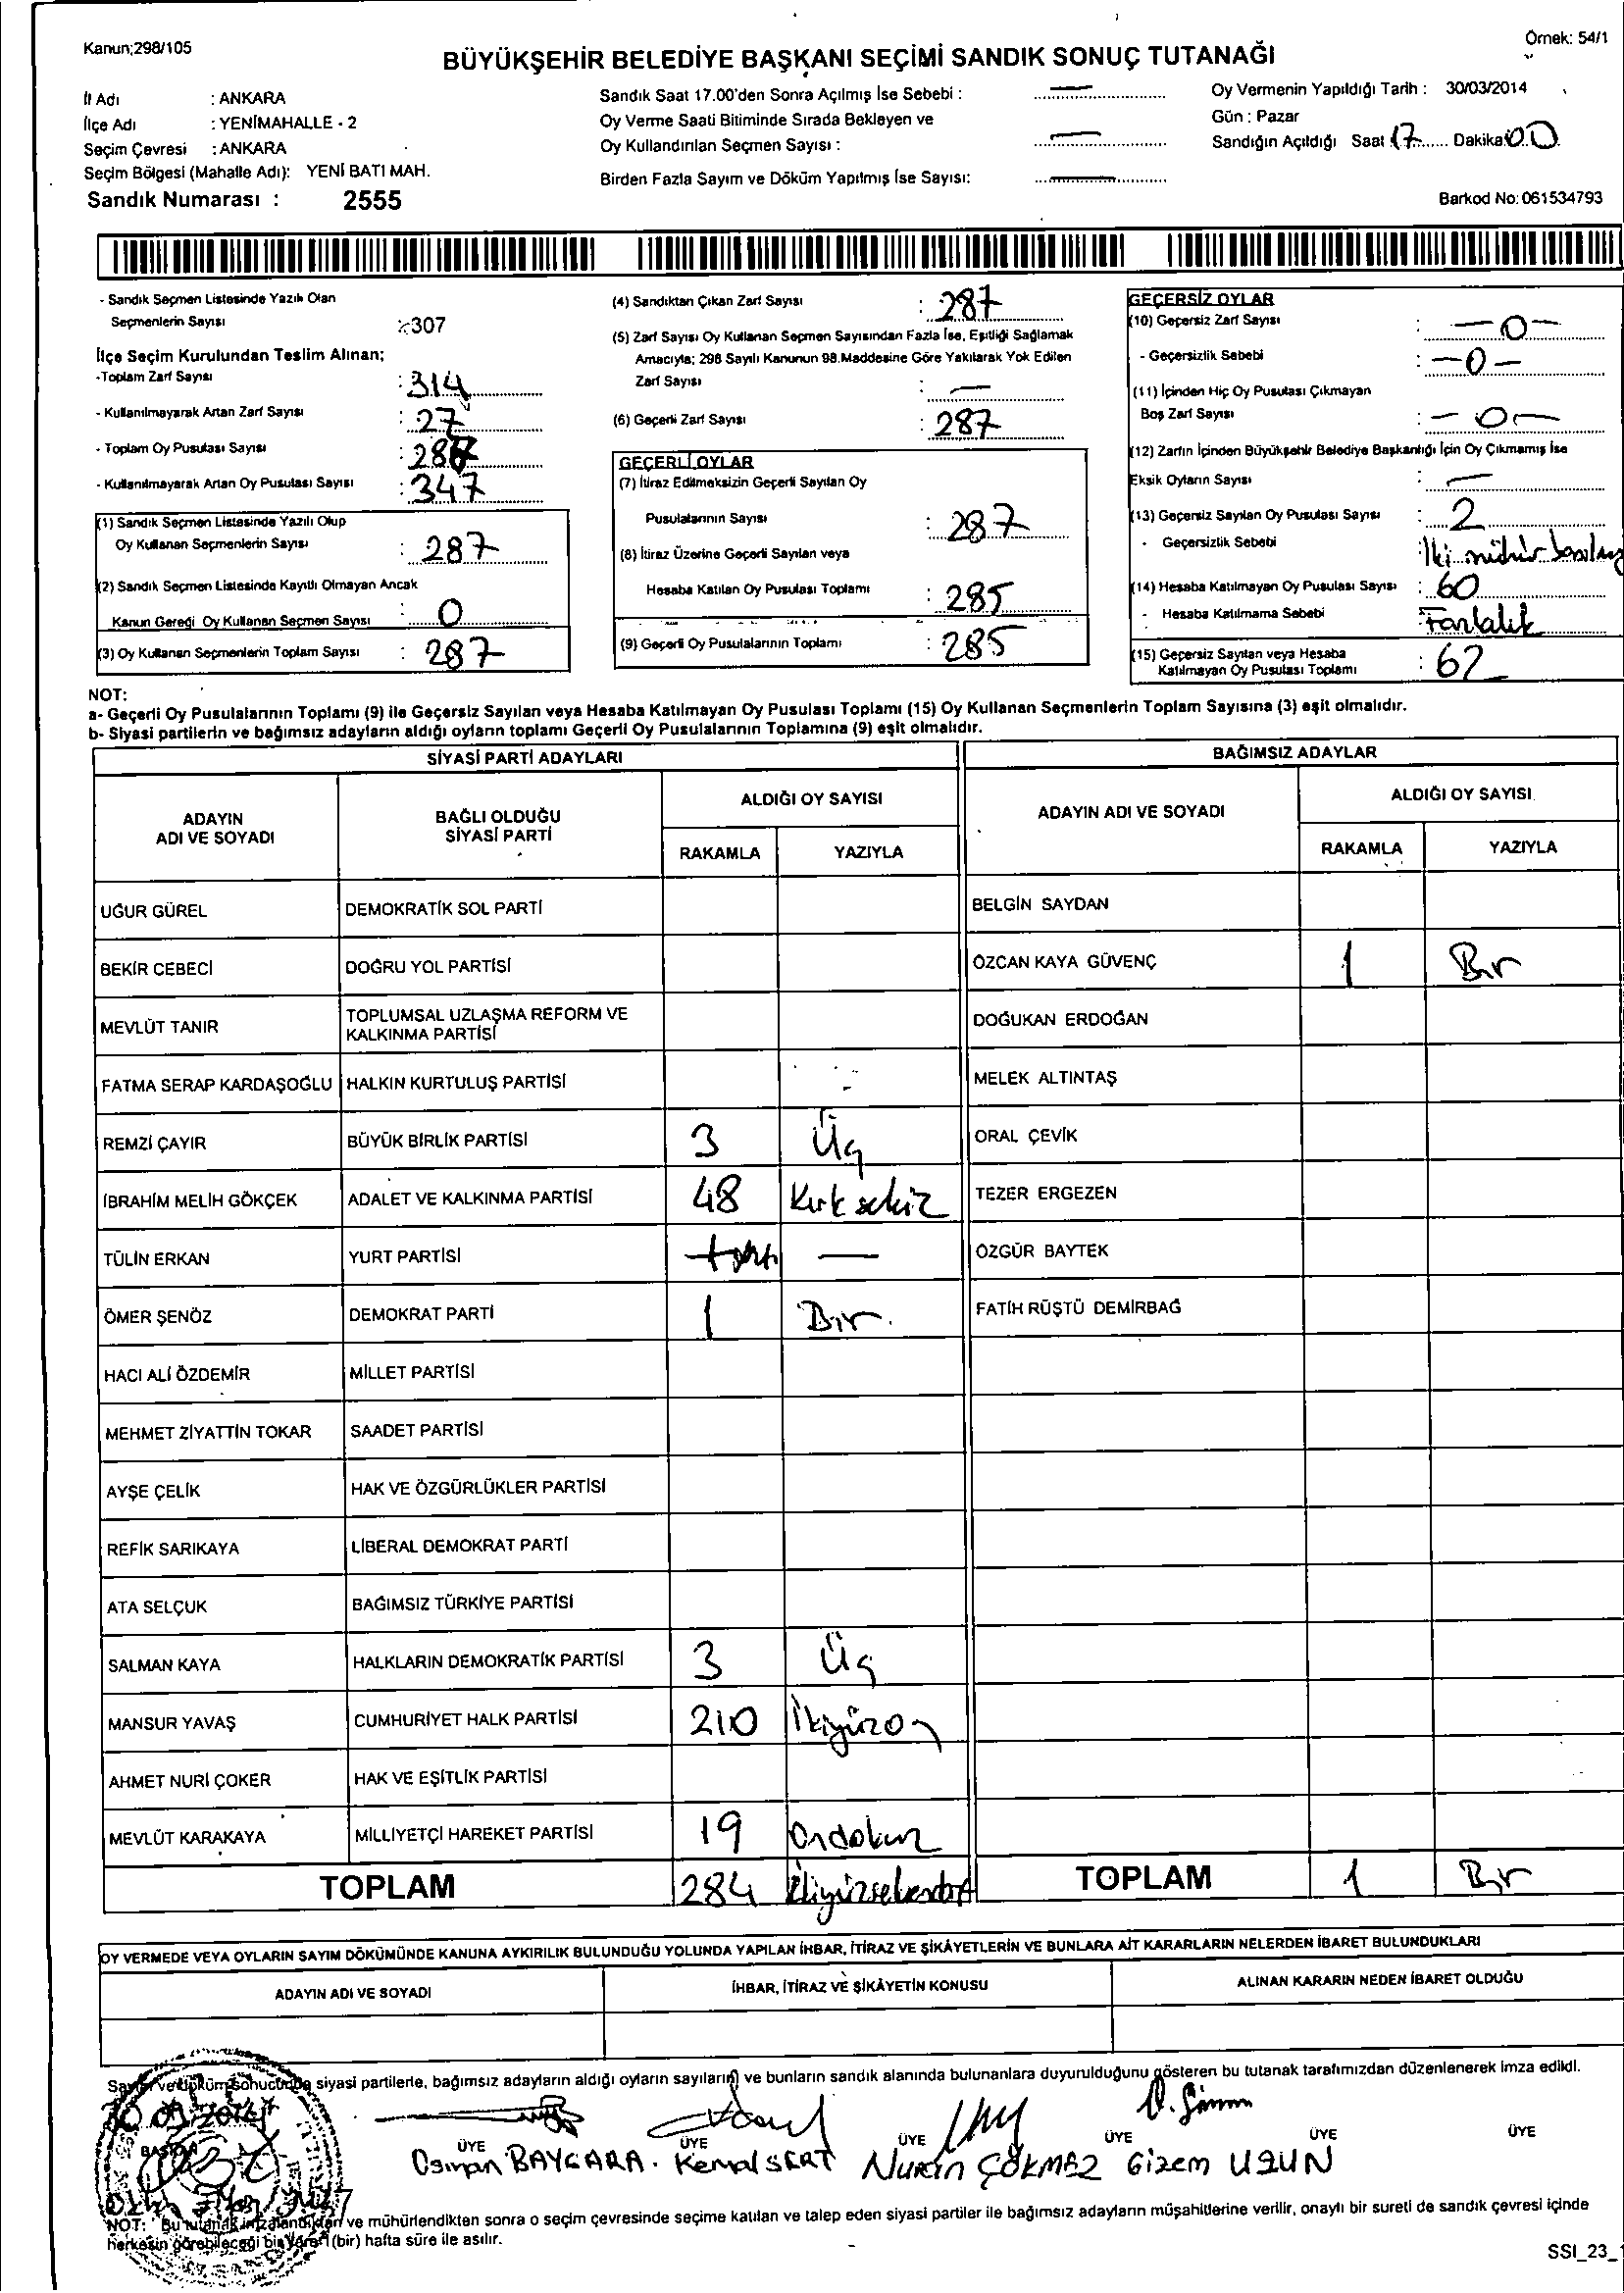 Kanun;298/105
Örnek: 54/1
BÜYÜKŞEHİR BELEDİYE BAŞKANI SEÇİMİ SANDIK SONUÇ TUTANAĞI
İl Adı : ANKARA
İlçe Adı : YENİMAHALLE - 2
Seçim Çevresi : ANKARA
Seçim Bölgesi (Mahalle Adı): YENİ BATI MAH.
Sandık Numarası : 2555
Sandık Saat 17.00'den Sonra Açılmış İse Sebebi : —
Oy Verme Saati Bitiminde Sırada Bekleyen ve
Oy Kullandırılan Seçmen Sayısı : —
Birden Fazla Sayım ve Döküm Yapılmış İse Sayısı: —
Oy Vermenin Yapıldığı Tarih : 30/03/2014
Gün : Pazar
Sandığın Açıldığı Saat 17 Dakika 00
Barkod No: 061534793
- Sandık Seçmen Listesinde Yazılı Olan
Seçmenlerin Sayısı : 307
İlçe Seçim Kurulundan Teslim Alınan;
-Toplam Zarf Sayısı : 314
- Kullanılmayarak Artan Zarf Sayısı : 27
- Toplam Oy Pusulası Sayısı :
- Kullanılmayarak Artan Oy Pusulası Sayısı : 347
(1) Sandık Seçmen Listesinde Yazılı Olup
Oy Kullanan Seçmenlerin Sayısı : 287
(2) Sandık Seçmen Listesinde Kayıtlı Olmayan Ancak
Kanun Gereği Oy Kullanan Seçmen Sayısı : 0
(3) Oy Kullanan Seçmenlerin Toplam Sayısı : 287
(4) Sandıktan Çıkan Zarf Sayısı : 287
(5) Zarf Sayısı Oy Kullanan Seçmen Sayısından Fazla İse, Eşitliği Sağlamak
Amacıyla; 298 Sayılı Kanunun 98.Maddesine Göre Yakılarak Yok Edilen
Zarf Sayısı : —
(6) Geçerli Zarf Sayısı : 287
GEÇERLİ OYLAR
(7) İtiraz Edilmeksizin Geçerli Sayılan Oy
Pusulalarının Sayısı : 287
(8) İtiraz Üzerine Geçerli Sayılan veya
Hesaba Katılan Oy Pusulası Toplamı : 285
(9) Geçerli Oy Pusulalarının Toplamı : 285
GEÇERSİZ OYLAR
(10) Geçersiz Zarf Sayısı : —0—
- Geçersizlik Sebebi : —0—
(11) İçinden Hiç Oy Pusulası Çıkmayan
Boş Zarf Sayısı : —0—
(12) Zarfın İçinden Büyükşehir Belediye Başkanlığı İçin Oy Çıkmamış İse
Eksik Oyların Sayısı : —
(13) Geçersiz Sayılan Oy Pusulası Sayısı : 2
- Geçersizlik Sebebi : İki mühür
(14) Hesaba Katılmayan Oy Pusulası Sayısı : 60
- Hesaba Katılmama Sebebi : Fazlalık
(15) Geçersiz Sayılan veya Hesaba
Katılmayan Oy Pusulası Toplamı : 62
NOT:
a- Geçerli Oy Pusulalarının Toplamı (9) ile Geçersiz Sayılan veya Hesaba Katılmayan Oy Pusulası Toplamı (15) Oy Kullanan Seçmenlerin Toplam Sayısına (3) eşit olmalıdır.
b- Siyasi partilerin ve bağımsız adayların aldığı oyların toplamı Geçerli Oy Pusulalarının Toplamına (9) eşit olmalıdır.
SİYASİ PARTİ ADAYLARI
ADAYIN
ADI VE SOYADI
BAĞLI OLDUĞU
SİYASİ PARTİ
ALDIĞI OY SAYISI
RAKAMLA YAZIYLA
UĞUR GÜREL DEMOKRATİK SOL PARTİ
BEKİR CEBECİ DOĞRU YOL PARTİSİ
MEVLÜT TANIR TOPLUMSAL UZLAŞMA REFORM VE
KALKINMA PARTİSİ
FATMA SERAP KARDAŞOĞLU HALKIN KURTULUŞ PARTİSİ
REMZİ ÇAYIR BÜYÜK BİRLİK PARTİSİ 3 Üç
İBRAHİM MELİH GÖKÇEK ADALET VE KALKINMA PARTİSİ 48 Kırk sekiz
TÜLİN ERKAN YURT PARTİSİ —
ÖMER ŞENÖZ DEMOKRAT PARTİ 1 Bir.
HACI ALİ ÖZDEMİR MİLLET PARTİSİ
MEHMET ZİYATTİN TOKAR SAADET PARTİSİ
AYŞE ÇELİK HAK VE ÖZGÜRLÜKLER PARTİSİ
REFİK SARIKAYA LİBERAL DEMOKRAT PARTİ
ATA SELÇUK BAĞIMSIZ TÜRKİYE PARTİSİ
SALMAN KAYA HALKLARIN DEMOKRATİK PARTİSİ 3 Üç
MANSUR YAVAŞ CUMHURİYET HALK PARTİSİ 210 İkiyüzon
AHMET NURİ ÇOKER HAK VE EŞİTLİK PARTİSİ
MEVLÜT KARAKAYA MİLLİYETÇİ HAREKET PARTİSİ 19 Ondokuz
TOPLAM 284 İkiyüzseksendört
BAĞIMSIZ ADAYLAR
ADAYIN ADI VE SOYADI
ALDIĞI OY SAYISI
RAKAMLA YAZIYLA
BELGİN SAYDAN
ÖZCAN KAYA GÜVENÇ 1 Bir
DOĞUKAN ERDOĞAN
MELEK ALTINTAŞ
ORAL ÇEVİK
TEZER ERGEZEN
ÖZGÜR BAYTEK
FATİH RÜŞTÜ DEMİRBAĞ
TOPLAM 1 Bir
OY VERMEDE VEYA OYLARIN SAYIM DÖKÜMÜNDE KANUNA AYKIRILIK BULUNDUĞU YOLUNDA YAPILAN İHBAR, İTİRAZ VE ŞİKÂYETLERİN VE BUNLARA AİT KARARLARIN NELERDEN İBARET BULUNDUKLARI
ADAYIN ADI VE SOYADI
İHBAR, İTİRAZ VE ŞİKÂYETİN KONUSU
ALINAN KARARIN NEDEN İBARET OLDUĞU
Sayım ve döküm sonucunda siyasi partilerle, bağımsız adayların aldığı oyların sayılarını ve bunların sandık alanında bulunanlara duyurulduğunu gösteren bu tutanak tarafımızdan düzenlenerek imza edildi.
BAŞKAN ÜYE ÜYE ÜYE ÜYE ÜYE ÜYE
Osman BAYCARA. Kemal SERT Nurin ÇÖKMEZ Gizem UZUN
NOT: Bu tutanak imzalandıktan ve mühürlendikten sonra o seçim çevresinde seçime katılan ve talep eden siyasi partiler ile bağımsız adayların müşahitlerine verilir, onaylı bir sureti de sandık çevresi içinde
herkesin görebileceği bir yere 1 (bir) hafta süre ile asılır.
SSI_23_